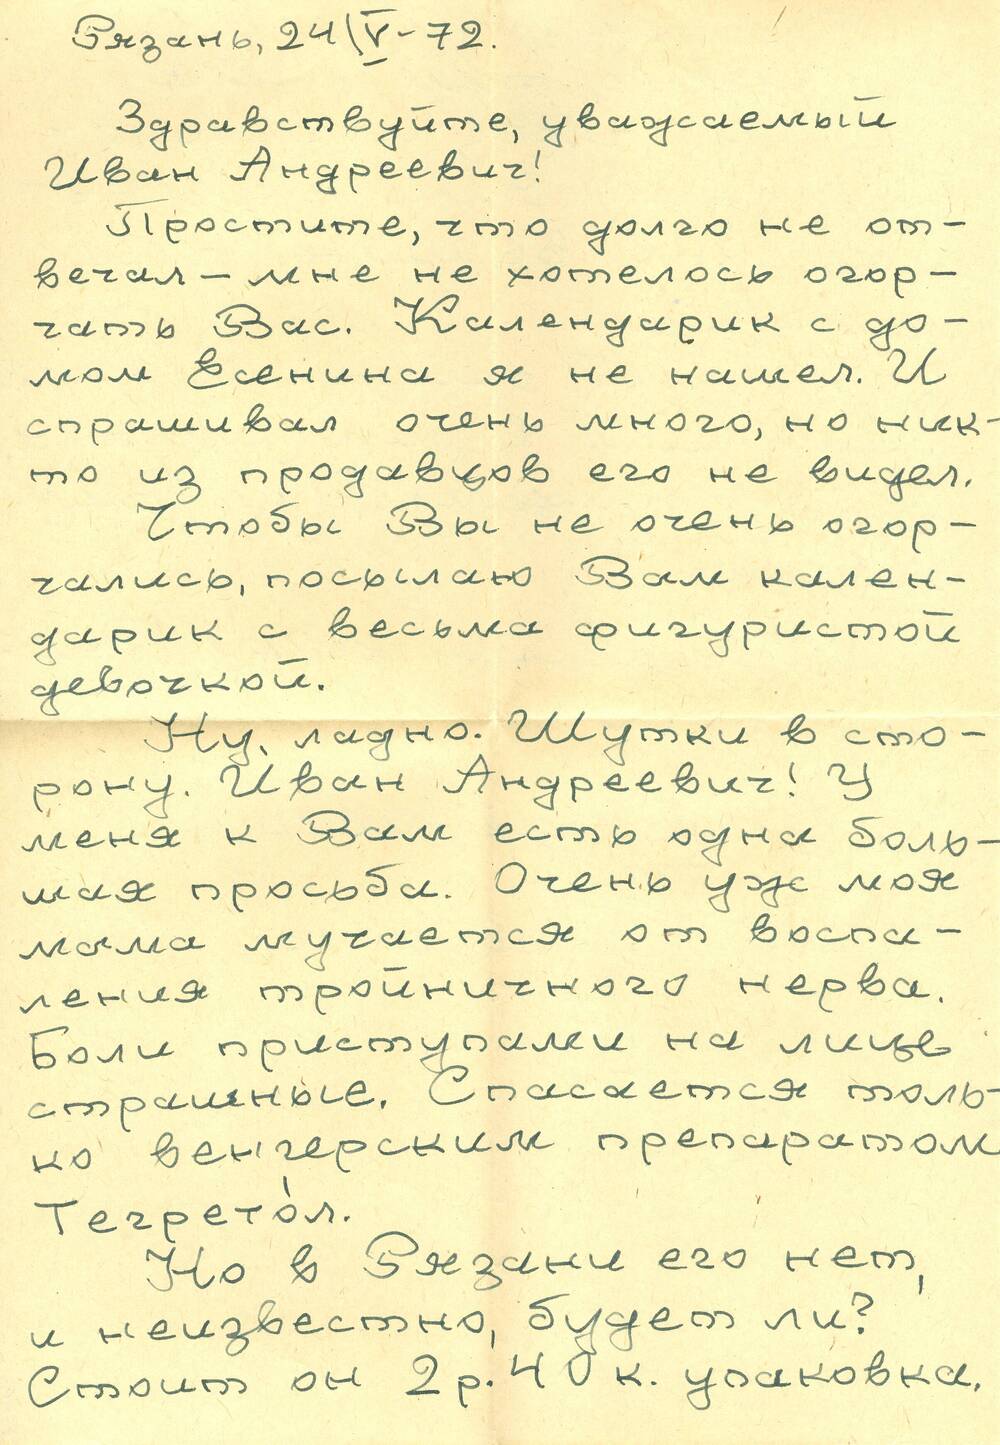 Рязань, 24/V-72.
Здравствуйте, уважаемый
Иван Андреевич!
Простите, что долго не от-
вечал - мне не хотелось огор-
чать Вас. Календарик с до-
мом Есенина я не нашел. И
спрашивал очень много, но ник-
то из продавцов его не видел.
Чтобы Вы не очень огор-
чались, посылаю Вам кален-
дарик с весьма фигуристой
девочкой.
Ну, ладно. Шутки в сто-
рону. Иван Андреевич! У
меня к Вам есть одна боль-
шая просьба. Очень уж моя
мама мучается от воспа-
ления тройничного нерва.
Боли приступами на лице
страшные. Спасается толь-
ко венгерским препаратом
Тегрето́л.
Но в Рязани его нет,
и неизвестно, будет ли?
Стоит он 2 р. 40 к. упаковка.